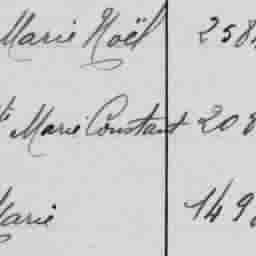 Marie Noël 258
te Marie Constant 208
Marie 149